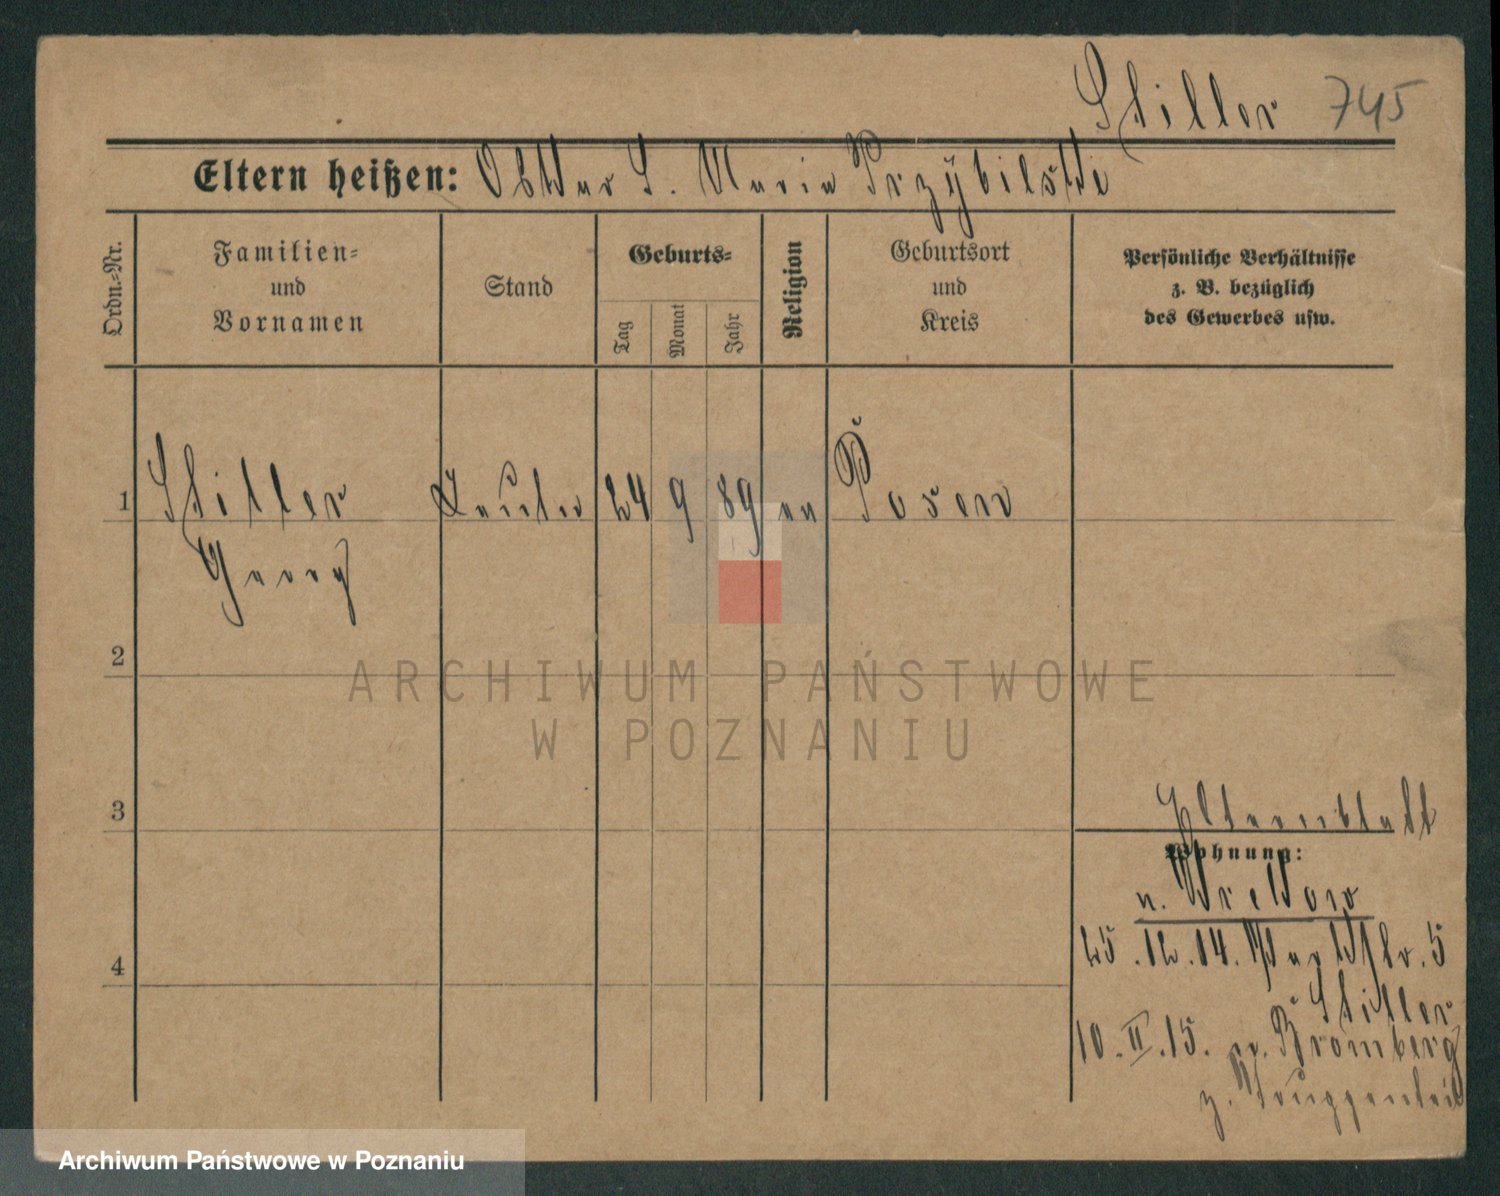 Stiller 745
Eltern heißen: Ottkar S. Maria Przybilski
Ordn.-Nr.
Familien-
und
Vornamen
Stand
Geburts-
Tag
Monat
Jahr
Religion
Geburtsort
und
Kreis
Persönliche Verhältnisse
z. B. bezüglich
des Gewerbes usw.
1 Stiller 24 9 89 Posen
Georg
2
ARCHIWUM PAŃSTWOWE
W POZNANIU
3
Elternblatt
Wohnung:
v. Bretow
25.12.14. Parkstr. 5
Stiller
10.II.15. n. Bromberg
z. Truppenteil
4
Archiwum Państwowe w Poznaniu